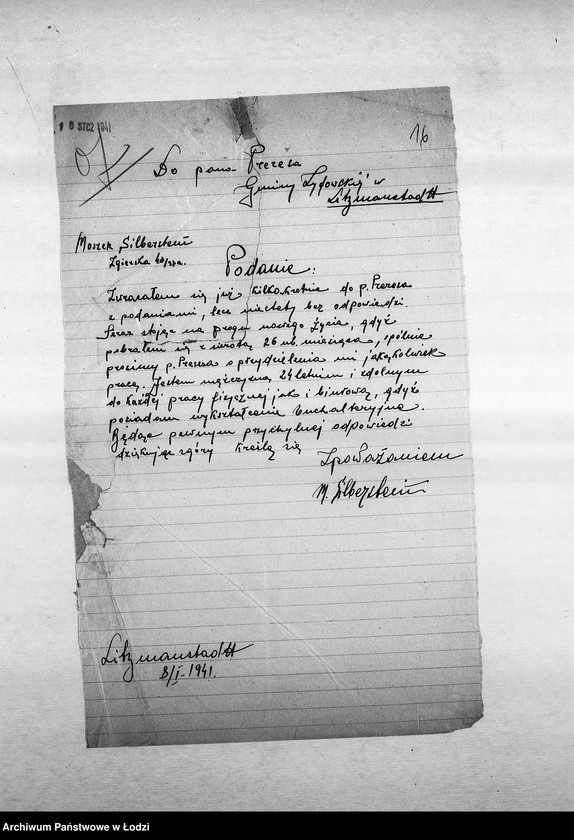 10 STCZ 1941
16
Do pana Prezesa
Gminy Żydowskiej w
Litzmanstadtt
Moszek Silberstein
Zgierska 40/37a.
Podanie:
Zwracałem się już kilkokrotnie do p. Prezesa
z podaniami, lecz niestety bez odpowiedzi.
Teraz stojąc na progu nowego życia, gdyż
pobrałem się z sierotą 26 ub. miesiąca, spólnie
prosimy p. Prezesa o przydzielenie mi jakąkolwiek
pracę. Jestem mężczyzną 24 letnim i zdolnym
do każdej pracy fizycznej jak i biurową, gdyż
posiadam wykształcenie buchalteryjne.
Będąc pewnym przychylnej odpowiedzi
dziękując zgóry kreślę się
Zpoważaniem
M. Silberstein
Litzmanstadtt
8/I-1941.
Archiwum Państwowe w Łodzi